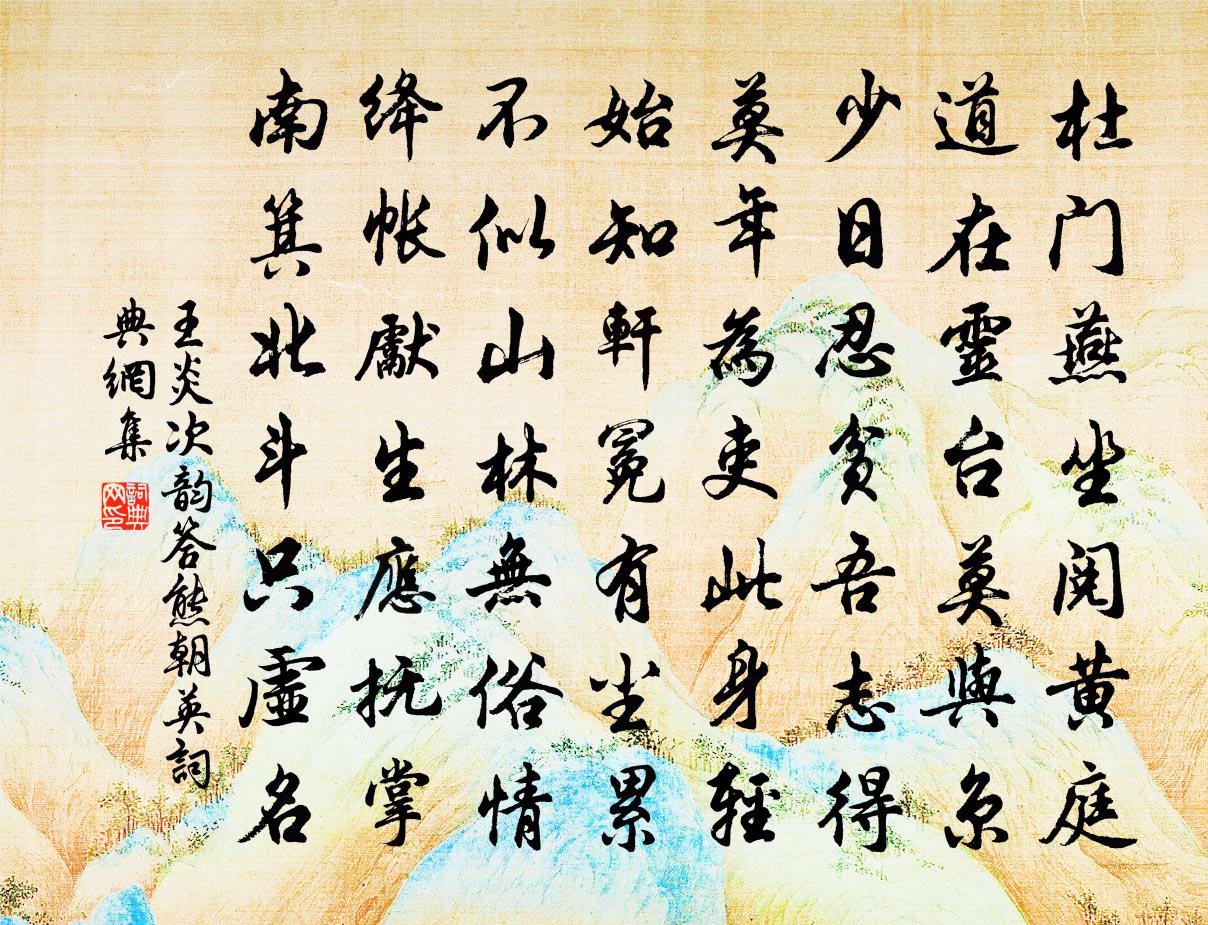 杜门燕坐阅黄庭
道在靈台莫與京
少日忍贫吾志得
莫年為吏此身輕
始知軒冕有尘累
不似山林無俗情
绛帐獻生應抚掌
南箕北斗只虛名
王炎次韵答熊朝英詞
典網集
詞典
网印